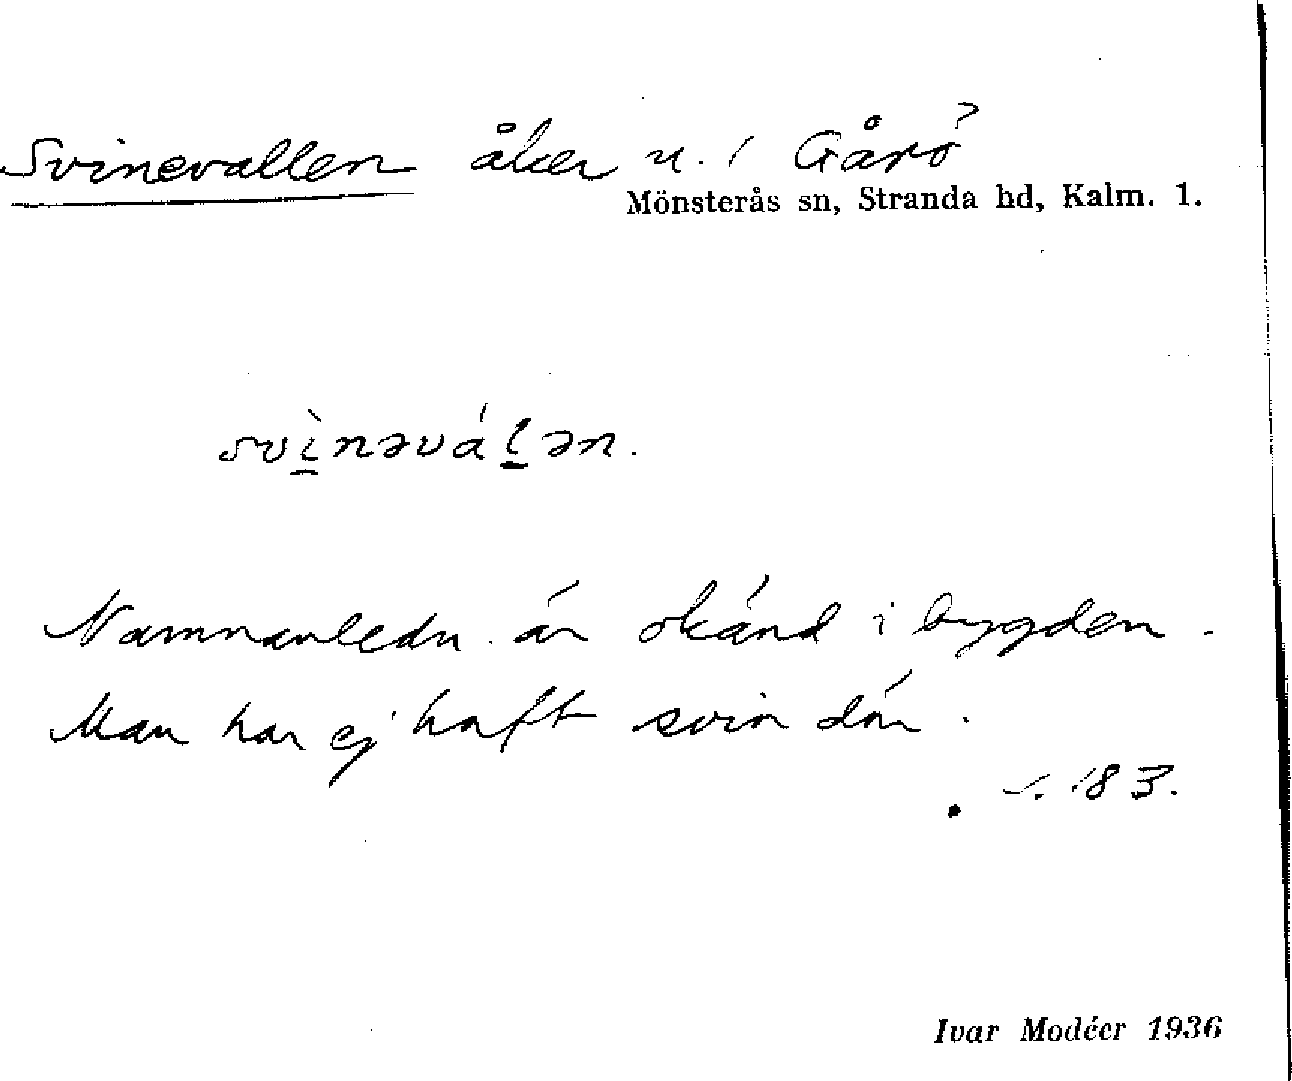 Svinevallen åker u. / Gårö
Mönsterås sn, Stranda hd, Kalm. l.
svìnəváḷən.
Namnanledn. är okänd i bygden.
Man har ej haft svin där.
s. 183.
Ivar Modéer 1936